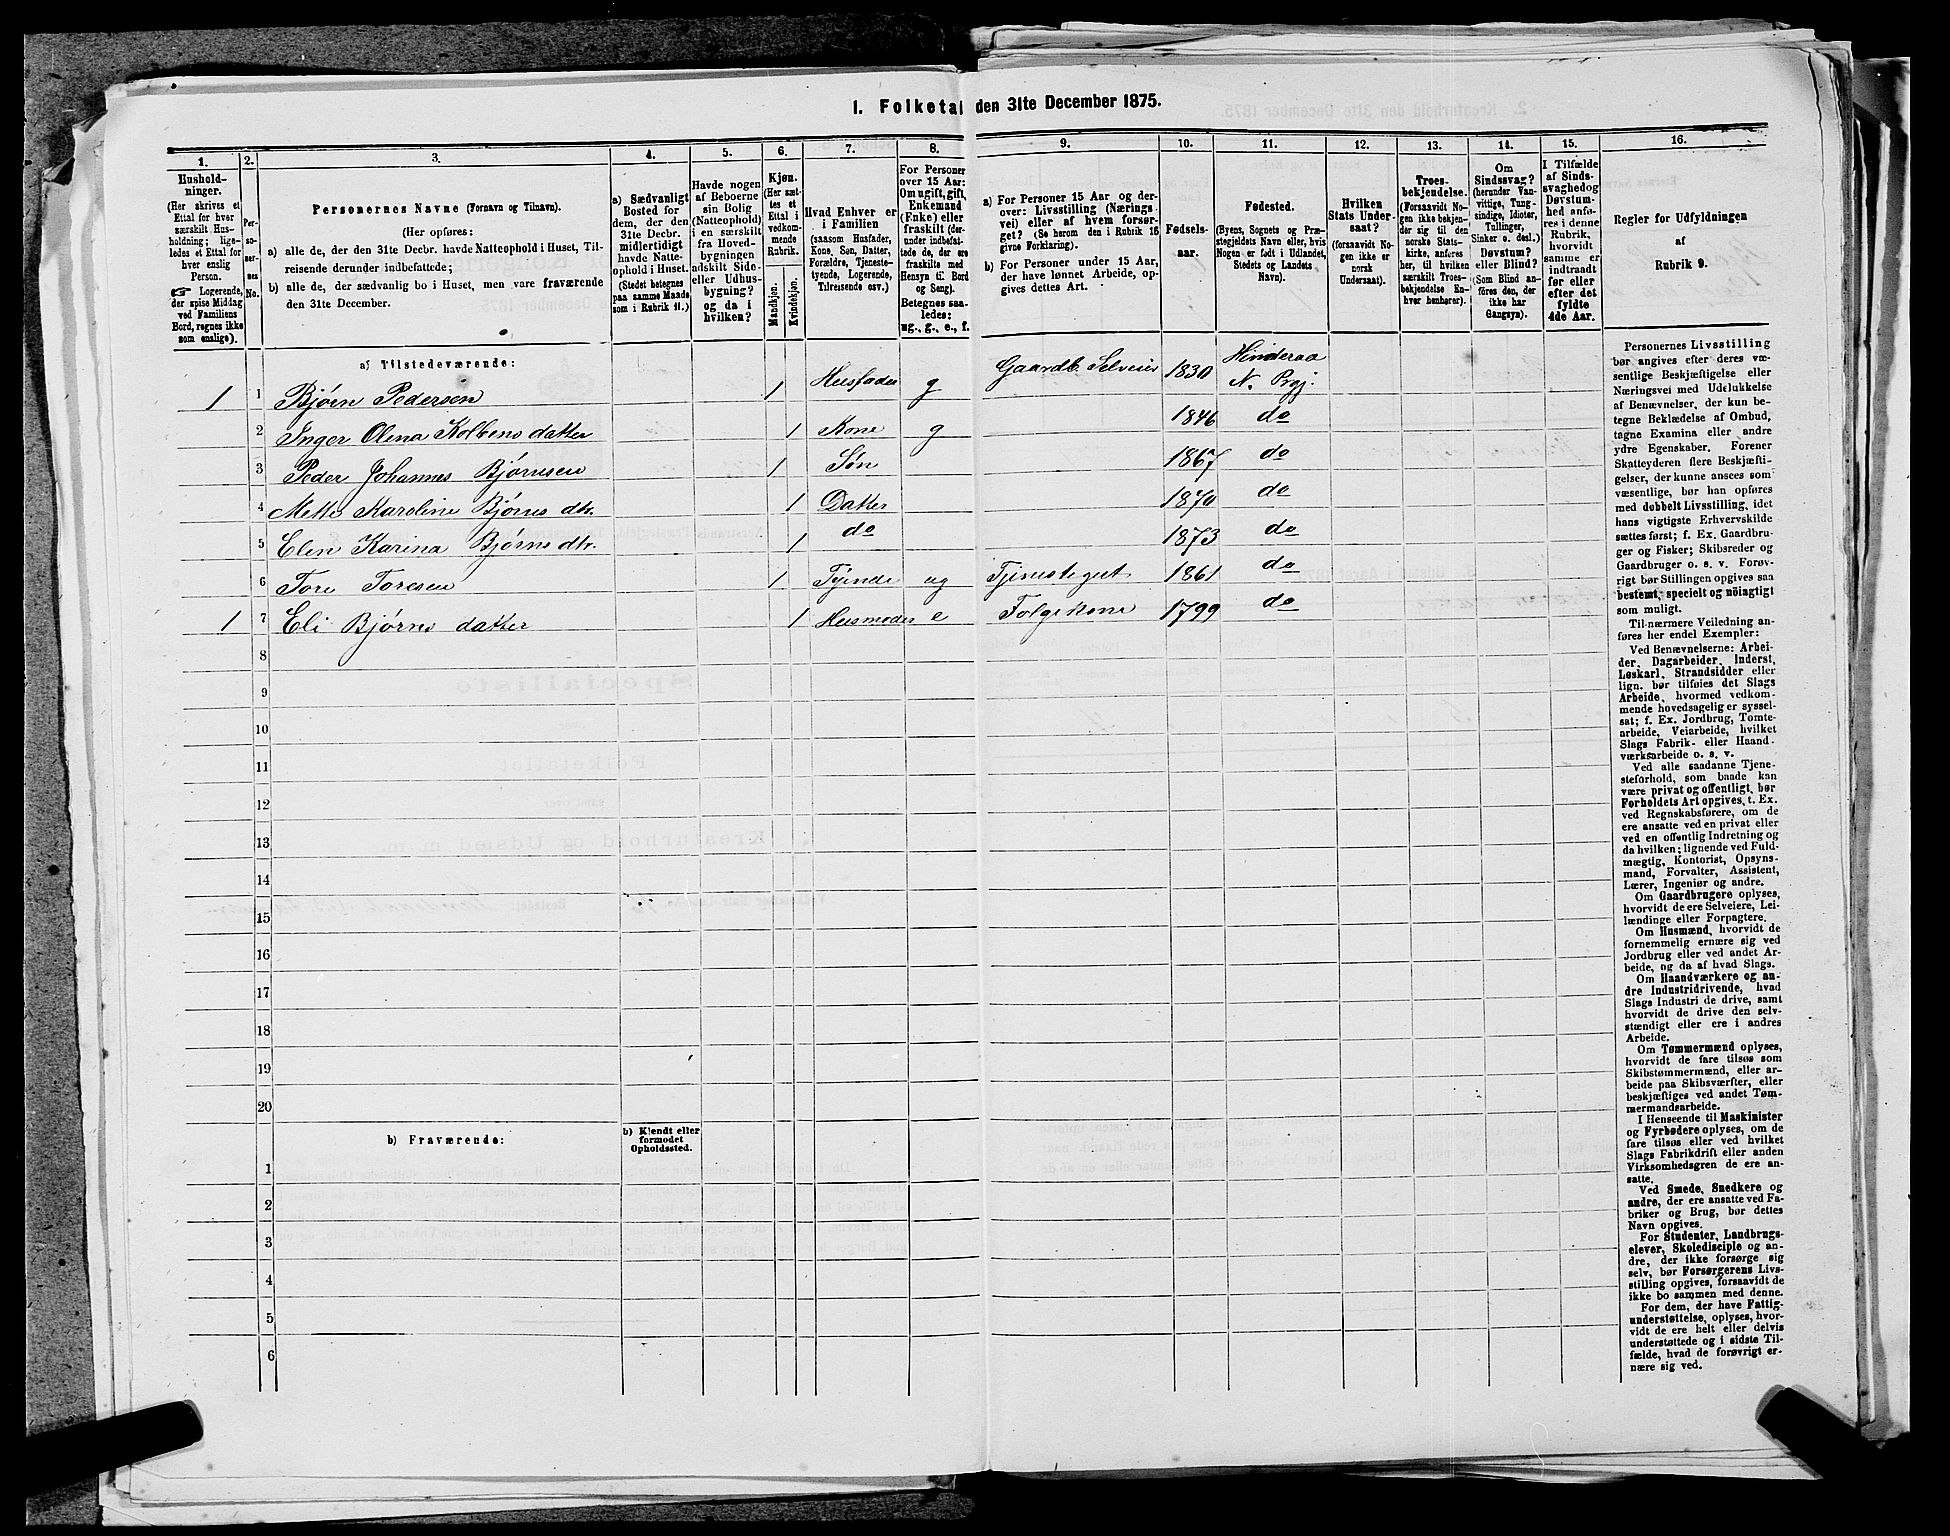 1. Folketal den 31te December 1875.
1.
2.
3.
4.
5.
6.
7.
8.
9.
10.
11.
12.
13.
14.
15.
16.
Hushold-
ninger.
(Her skrives et
Ettal for hver
særskilt Hus-
holdning; lige-
ledes et Ettal for
hver enslig
Person.
☞ Logerende,
der spise Middag
ved Familiens
Bord, regnes ikke
som enslige).
Per-
so-
ner-
nes
No.
Personernes Navne (Fornavn og Tilnavn).
(Her opføres:
a) alle de, der den 31te Decbr. havde Natteophold i Huset, Til-
reisende derunder indbefattede;
b) alle de, der sædvanlig bo i Huset, men vare fraværende
den 31te December.
a) Sædvanligt
Bosted for
dem, der den
31te Decbr.
midlertidigt
havde Natte-
ophold i Huset.
(Stedet betegnes
paa samme Maade
som i Rubrik 11.)
Havde nogen
af Beboerne
sin Bolig
(Natteophold)
i en særskilt
fra Hoved-
bygningen
adskilt Side-
eller Udhus-
bygning?
og da i
hvilken?
Kjøn.
(Her sæt-
tes et
Ettal i
vedkom-
mende
Rubrik.
Mandkjøn.
Kvindekjøn.
Hvad Enhver er
i Familien
(saasom Husfader,
Kone, Søn, Datter,
Forældre, Tjeneste-
tyende, Logerende,
Tilreisende osv.)
For Personer
over 15 Aar:
Om ugift, gift,
Enkemand
(Enke) eller
fraskilt (der-
under indbefat-
tede de, der ere
fraskilte med
Hensyn til Bord
og Seng).
Betegnes saa-
ledes:
ug., g., e., f.
a) For Personer 15 Aar og der-
over: Livsstilling (Nærings-
vei) eller af hvem forsør-
get? (Se herom den i Rubrik 16
givne Forklaring).
b) For Personer under 15 Aar,
der have lønnet Arbeide, op-
gives dettes Art.
Fødsels-
aar.
Fødested.
(Byens, Sognets og Præ-
stegjeldets Navn eller, hvis
Nogen er født i Udlandet,
Stedets og Landets
Navn).
Hvilken
Stats Under-
saat?
(forsaavidt No-
gen ikke er
norsk
Undersaat).
Troes-
bekjendelse.
(Forsaavidt No-
gen ikke bekjen-
der sig til den
norske Stats-
kirke, anføres
her, til hvilken
særskilt Troes-
bekjendelse En-
hver henhører).
Om
Sindssvag?
(herunder Van-
vittige, Tung-
sindige, Idioter,
Tullinger,
Sinker o. desl.)
Døvstum?
eller Blind?
(Som Blind an-
føres den, der
ikke har
Gangsyn).
I Tilfælde
af Sinds-
svaghed og
Døvstum-
hed anfø-
res i denne
Rubrik,
hvorvidt
samme er
indtraadt
før eller
efter det
fyldte
4de Aar.
Regler for Udfyldningen
af
Rubrik 9.
a) Tilstedeværende:
1 1 Bjørn Pedersen 1 Husfader g Gaardb. Selveier 1830 Hinderaa N. Prgj.
2 Inger Olena Kolbens datter 1 Kone g 1846 do
3 Peder Johannes Bjørnsen 1 Søn 1867 do
4 Mette Karoline Bjørns dtr. 1 Datter 1870 do
5 Elen Karina Bjørns dtr. 1 do 1873 do
6 Tore Toresen 1 Tjende ug Tjenestegut 1861 do
1 7 Eli Bjørns datter 1 Husmoder e Folgekone 1799 do
8
9
10
11
12
13
14
15
16
17
18
19
20
b) Fraværende:
b) Kjendt eller
formodet
Opholdssted.
1
2
3
4
5
6
Personernes Livsstilling
bør angives efter deres væ-
sentlige Beskjæftigelse eller
Næringsvei med Udelukkelse
af Benævnelser, der kun be-
tegne Beklædelse af Ombud,
tagne Examina eller andre
ydre Egenskaber. Forener
Skatteyderen flere Beskjæfti-
gelser, der kunne ansees som
væsentlige, bør han opføres
med dobbelt Livsstilling, idet
hans vigtigste Erhvervskilde
sættes først; f. Ex. Gaardbru-
ger og Fisker; Skibsreder og
Gaardbruger o. s. v. Forøv-
rigt bør Stillingen opgives saa
bestemt, specielt og nøiagtigt
som muligt.
Til nærmere Veiledning an-
føres her endel Exempler:
Ved Benævnelserne: Arbei-
der, Dagarbeider, Inderst,
Løskarl, Strandsidder eller
lign. bør tilføies det Slags
Arbeide, hvormed vedkom-
mende hovedsagelig er syssel-
sat; f. Ex. Jordbrug, Tomte-
arbeide, Veiarbeide, hvilket
Slags Fabrik- eller Haand-
værksarbeide o. s. v.
Ved alle saadanne Tjene-
steforhold, som baade kan
være privat og offentligt, bør
Forholdets Art opgives, t. Ex.
ved Regnskabsførere, om de
ere ansatte ved en privat eller
ved en offentlig Indretning og
da hvilken; lignende ved Fuld-
mægtig, Kontorist, Opsyns-
mand, Forvalter, Assistent,
Lærer, Ingeniør og andre.
Om Gaardbrugere oplyses,
hvorvidt de ere Selveiere, Lei-
lændinge eller Forpagtere.
Om Husmænd, hvorvidt de
fornemmelig ernære sig ved
Jordbrug eller ved andet Ar-
beide, og da af hvad Slags.
Om Haandværkere og an-
dre Industridrivende, hvad
Slags Industri de drive, samt
hvorvidt de drive den selv-
stændigt eller ere i andres
Arbeide.
Om Tømmermænd oplyses,
hvorvidt de fare tilsøs som
Skibstømmermænd, eller ar-
beide paa Skibsværfter, eller
beskjæftiges ved andet Tøm-
mermandsarbeide.
I Henseende til Maskinister
og Fyrbødere oplyses, om de
fare tilsøs eller ved hvilket
Slags Fabrikdrift eller anden
Virksomhedsgren de ere an-
satte.
Ved Smede, Snedkere og
andre, der ere ansatte ved Fa-
briker og Brug, bør dettes
Navn opgives.
For Studenter, Landbrugs-
elever, Skoledisciple og an-
dre, der ikke forsørge sig
selv, bør Forsørgerens Livs-
stilling opgives, forsaavidt de
ikke bo sammen med denne.
For dem, der have Fattig-
understøttelse, oplyses, hvor-
vidt de ere helt eller delvis
understøttede og i sidste Til-
fælde, hvad de forøvrigt er-
nære sig ved.